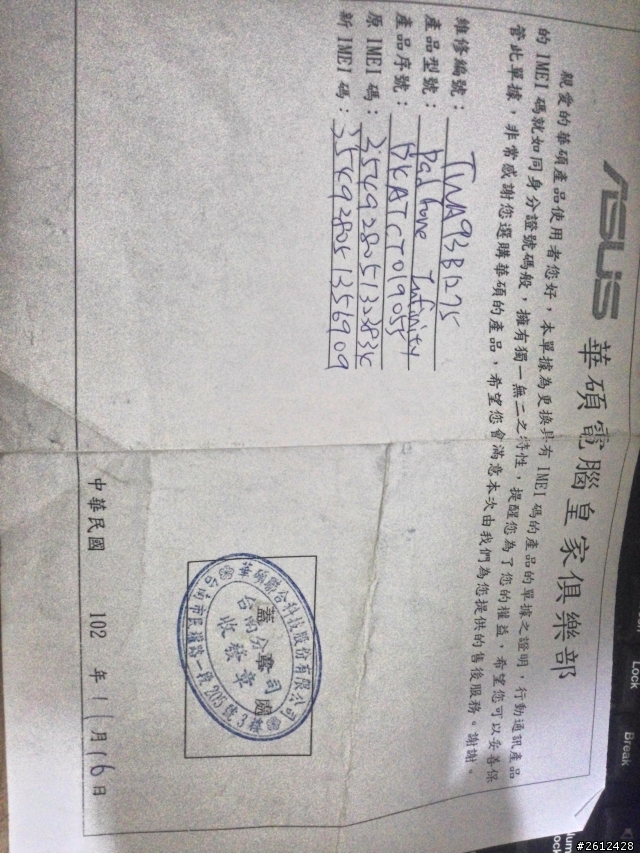 ASUS 華碩電腦皇家俱樂部
親愛的華碩產品使用者您好，本單據為更換具有 IMEI 碼的產品的單據之證明，行動通訊產品
的 IMEI 碼就如同身分證號碼般，擁有獨一無二之特性，提醒您為了您的權益，希望您可以妥善保
管此單據，非常感謝您選購華碩的產品，希望您會滿意本次由我們為您提供的售後服務。謝謝。
維修編號：TWA93B1275
產品型號：Padfone Infinity
產品序號：
原 IMEI 碼：
新 IMEI 碼：354928051356909
華碩聯合科技股份有限公司
台南分公司
收發章
蓋 處
台南市民權路一段205號3樓
中華民國 102 年 11 月 16 日
Lock
Break
Num
Lock
#2612428